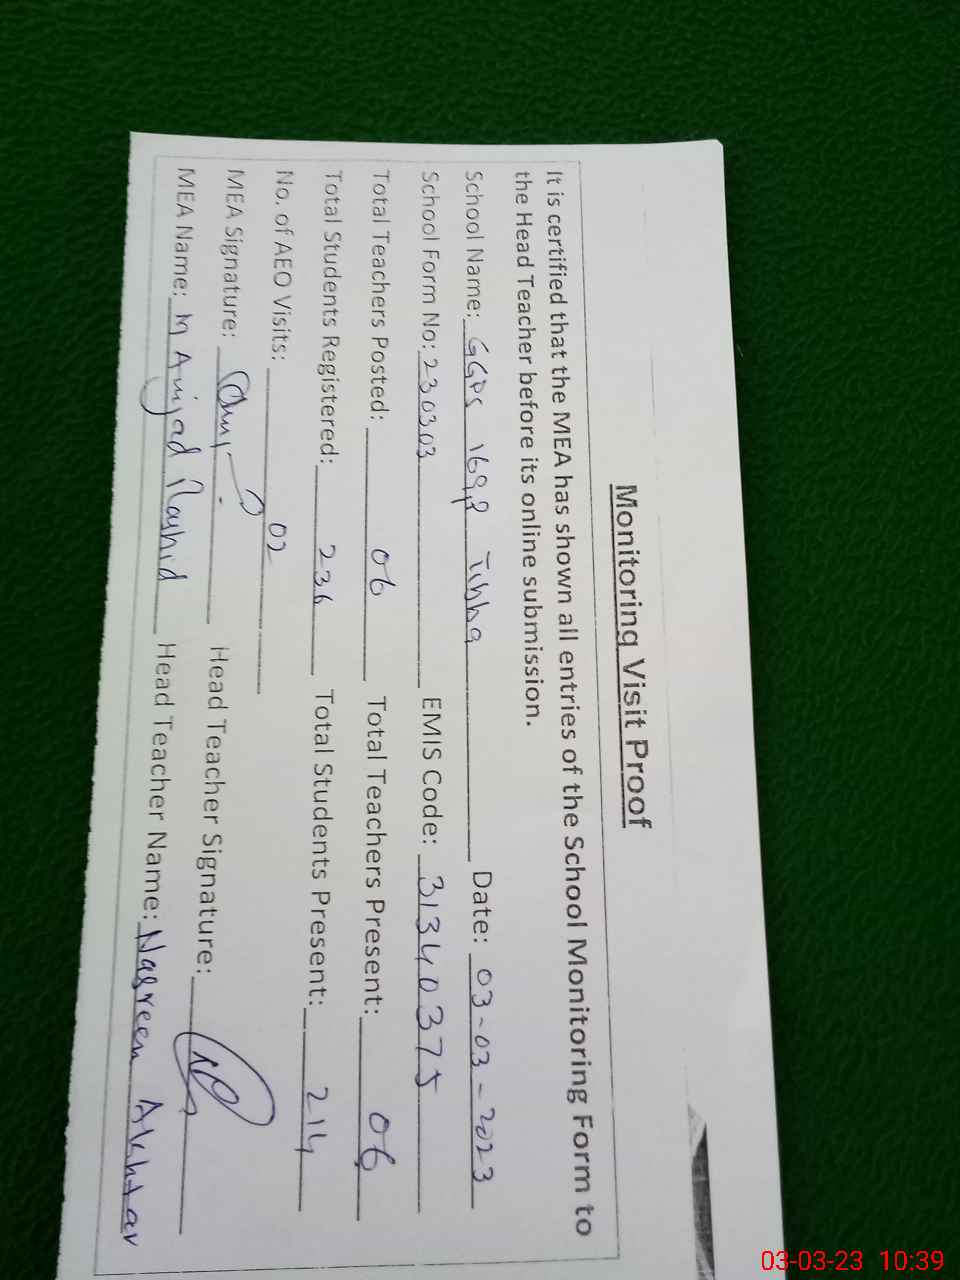 Monitoring Visit Proof
It is certified that the MEA has shown all entries of the School Monitoring Form to
the Head Teacher before its online submission.
School Name: GGPS 169P Tibba Date: 03-03-2023
School Form No: 230303 EMIS Code: 31340375
Total Teachers Posted: 06 Total Teachers Present: 06
Total Students Registered: 236 Total Students Present: 214
No. of AEO Visits: 02
MEA Signature: Head Teacher Signature:
MEA Name: M Amjad Rashid Head Teacher Name: Nasreen Akhtar
03-03-23 10:39